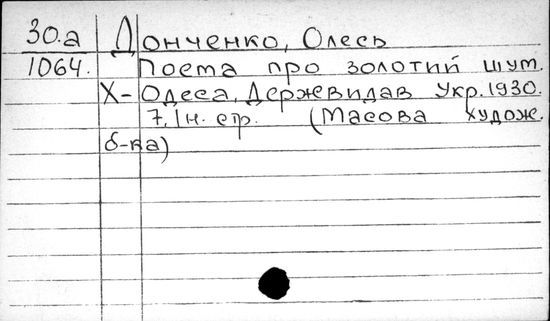 30.а Донченко, Олесь
1064. Поема про золотий шум.
Х-Одеса, Держвидав Укр. 1930.
7, 1н. стр. (Масова худож.
б-ка)